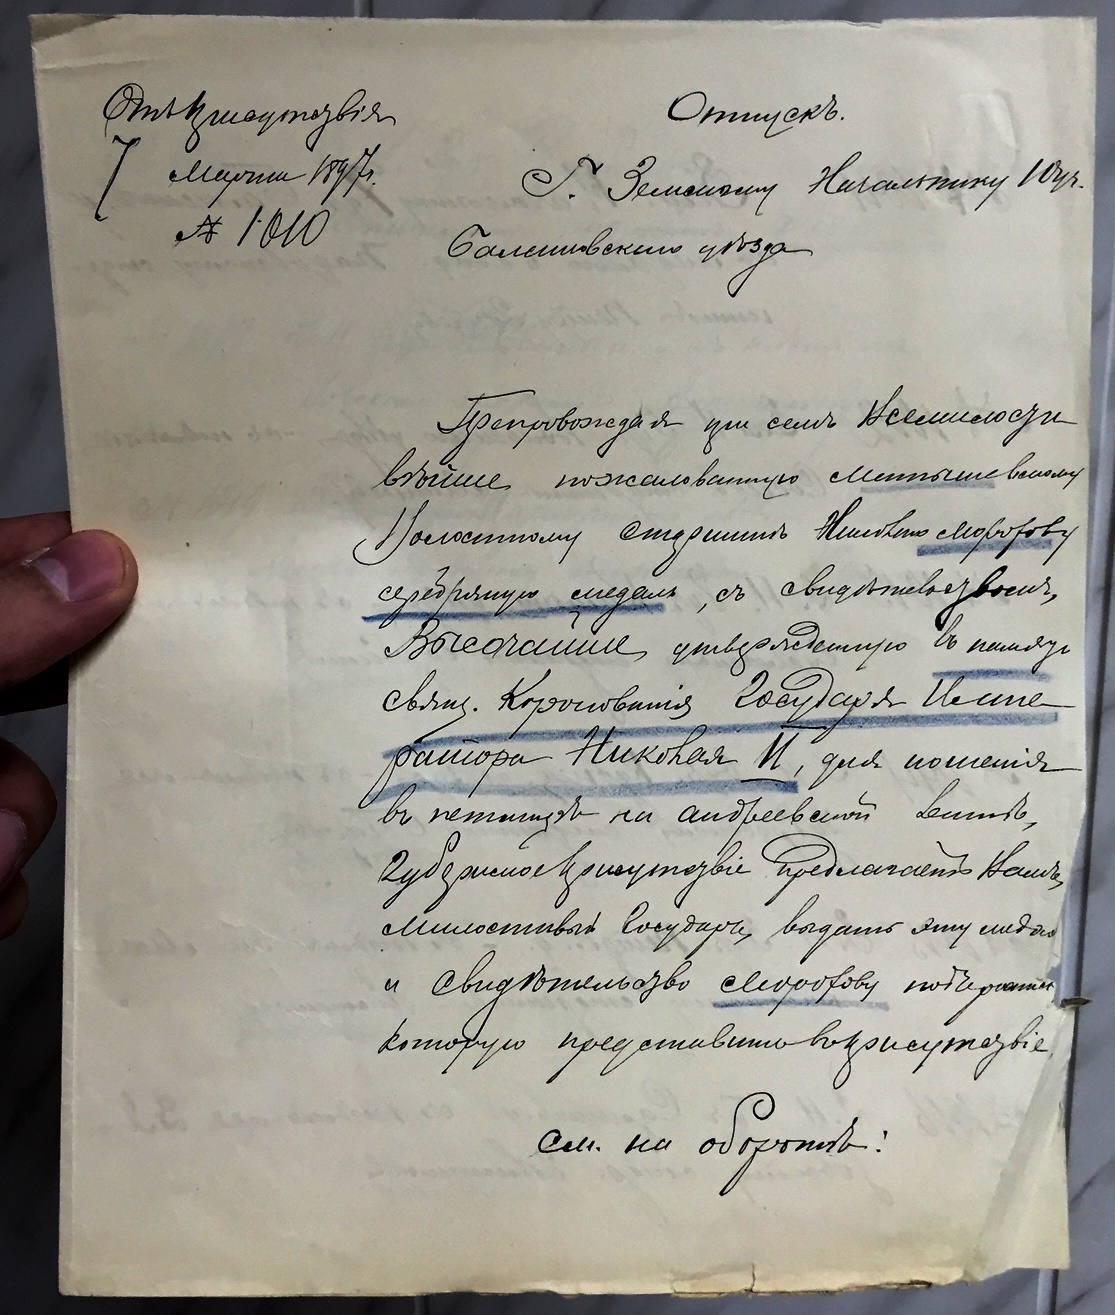 Отъ Присутствія
7 Марта 1897 г.
№ 1010
Отпускъ.
Г. Земскому Начальнику 1 Оуч.
Балашовскаго уѣзда
Препровождая при семъ Всемилости
вѣйше пожалованную
Волостному старшинѣ Морозову
серебряную медаль, съ свидѣтельствомъ,
Высочайше утвержденную въ память
Свящ. Коронованія Государя Импе
ратора Николая II, для ношенія
въ петлицѣ на андреевской лентѣ,
Губернское Присутствіе предлагаетъ Вамъ,
Милостивый Государь, выдать эту медаль
и свидѣтельство Морозову подъ росписку
которую представить въ Присутствіе.
См. на оборотѣ: